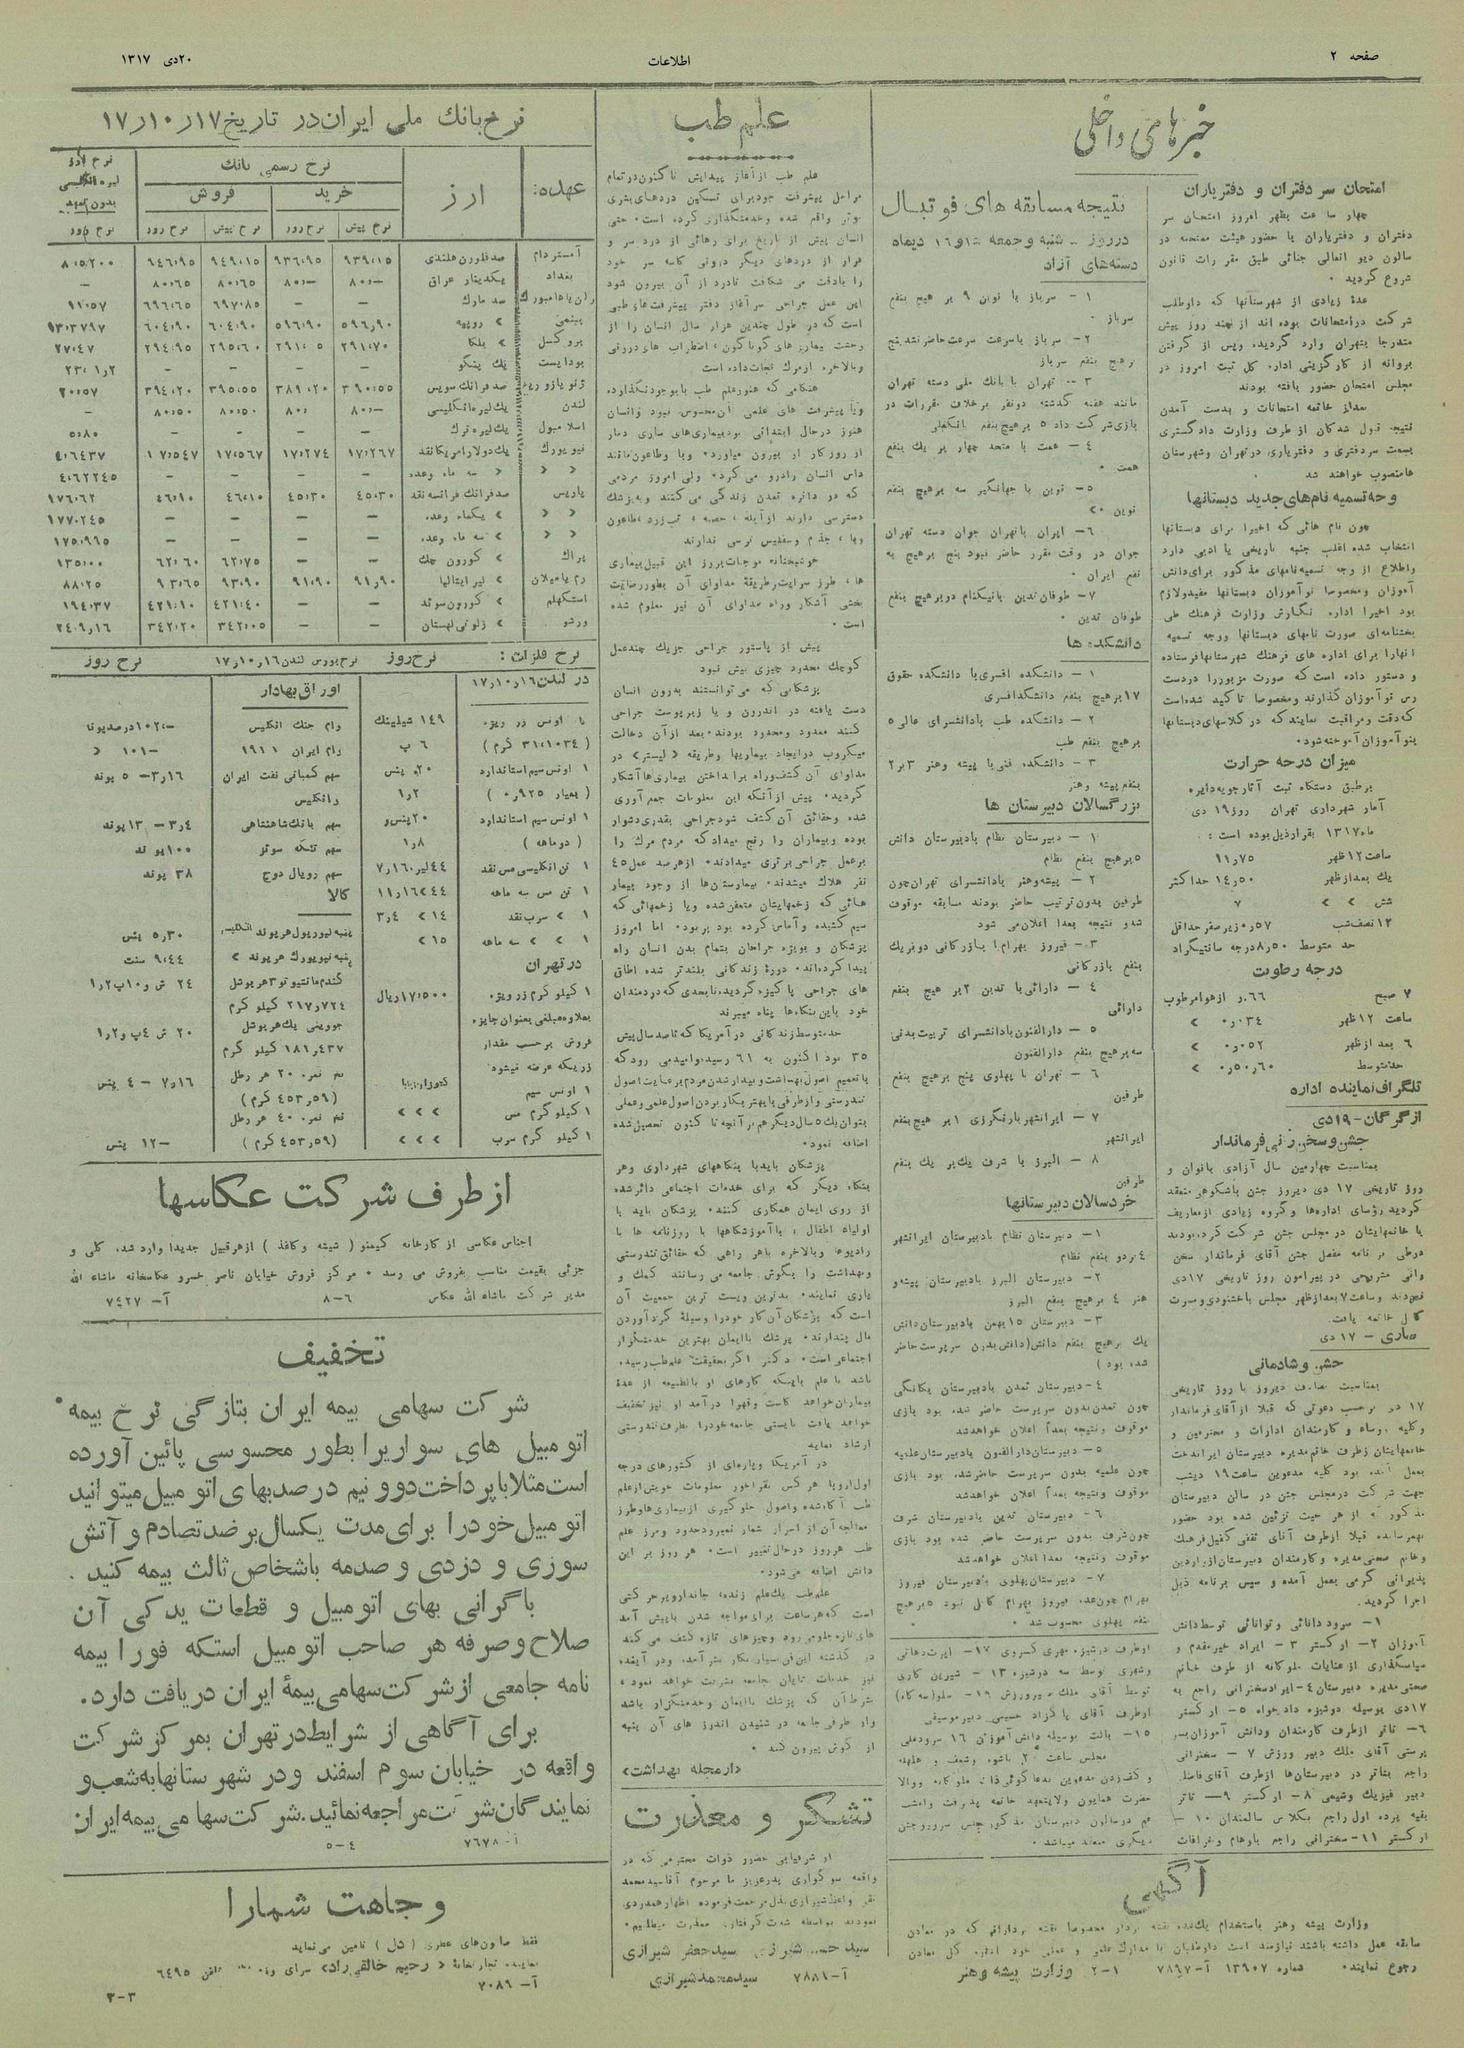 صفحه ۲
اطلاعات
۲۰دی ۱۳۱۷
خبرهای داخلی
امتحان سر دفتران و دفتریاران
چهار ساعت بظهر امروز امتحان سر
دفتران و دفتریاران با حضور هیئت ممتحنه در
سالون دیو انعالی جنائی طبق مقررات قانون
شروع گردید .
عدهٔ زیادی از شهرستانها که داوطلب
شرکت در امتحانات بوده اند از چند روز پیش
متدرجا بتهران وارد گردیده وپس از گرفتن
پروانه از کارگزینی اداره کل ثبت امروز در
مجلس امتحان حضور یافته بودند
بعداز خاتمه امتحانات و بدست آمدن
نتیجه قبول شدکان از طرف وزارت دادگستری
بسمت سردفتری و دفتریاری درتهران وشهرستان
هامنصوب خواهند شد
وجه تسمیه نام‌های جدید دبستانها
چون نام هائی که اخیرا برای دبستانها
انتخاب شده اغلب جنبه تاریخی یا ادبی دارد
واطلاع از وجه تسمیه نامهای مذکور برای دانش
آموزان ومخصوصا نو آموزان دبستانها مفیدولازم
بود اخیرا اداره نگارش وزارت فرهنگ طی
بخشنامه‌ای صورت نامهای دبستانها ووجه تسمیه
آنهارا برای اداره های فرهنگ شهرستانها فرستاده
و دستور داده است که صورت مزبوررا دردست
رس نو آموزان گذارند ومخصوصا تاکید شده‌است
که دقت ومراقبت نمایند که در کلاسهای دبستانها
بنو آموزان آموخته‌شود.
میزان درجه حرارت
برطبق دستگاه ثبت آثار جویه دایره
آمار شهرداری تهران روز ۱۹ دی
ماه ۱۳۱۷ بقرار ذیل بوده است :
ساعت ۱۲ ظهر ۱۱٫۷۵
یك بعد از ظهر ۱۴٫۵۰ حداکثر
شش > > ۷
۱۲ نصف‌شب ۰٫۵۷ زیر صفر حداقل
حد متوسط ۸٫۵۰ درجه سانتیگراد
درجه رطوبت
۷ صبح ۰٫۶۶ از هوا مرطوب
ساعت ۱۲ ظهر ۰٫۰۳۴ >
۶ بعد از ظهر ۰٫۰۵۲ >
حد متوسط ۰٫۵۰٫۶۰ >
تلگراف نماینده اداره
از گرگان – ۱۹دی
جشن و سخن رانی فرماندار
بمناسبت چهارمین سال آزادی بانوان و
روز تاریخی ۱۷ دی دیروز جشن باشکوهی منعقد
گردید رؤسای اداره‌ها وگروه زیادی ازمعاریف
با خانمهایشان در مجلس جشن شرکت کرده بودند
درطی برنامه مفصل جشن آقای فرماندار سخن
رانی مشروحی در پیرامون روز تاریخی ۱۷دی
نمودند وساعت ۷ بعداز ظهر مجلس باخشنودی ومسرت
کامل خاتمه یافت.
ساری – ۱۷ دی
جشن و شادمانی
بمناسبت تصادف دیروز با روز تاریخی
۱۷ دی برحسب دعوتی که قبلا از آقای فرماندار
وکلیه رؤساء و کارمندان ادارات و محترمین و
خانمهایشان از طرف خانم مدیره دبستان ایراندخت
بعمل آمده بود کلیه مدعوین ساعت ۱۹ دیشب
جهت شرکت در مجلس جشن در سالن دبیرستان
مذکور که از هر حیث تزیین شده بود حضور
بهم رسانده قبلا ازطرف آقای ثقفی کفیل فرهنگ
وخانم صحتی مدیره و کارمندان دبیرستان از واردین
پذیرائی گرمی بعمل آمده و سپس برنامه ذیل
اجرا گردید.
۱– سرود دانائی و توانائی توسط دانش
آموزان ۲– ارکستر ۳– ایراد خیرمقدم و
سپاسگذاری از عنایات ملوکانه از طرف خانم
صحتی مدیره دبیرستان ۴– ایرادسخنرانی راجع به
۱۷دی بوسیله دوشیزه دادخواه ۵– ارکستر
۶– تاتر ازطرف کارمندان ودانش آموزان بسر
پرستی آقای ملك دبیر ورزش ۷– سخنرانی
راجع بتئاتر در دبیرستان‌ها ازطرف آقای فاضل
دبیر فیزیك وشیمی ۸– ارکستر ۹– تاتر
بقیه پرده اول راجع بکلاس سالمندان ۱۰–
ارکستر ۱۱– سخنرانی راجع باوهام وخرافات
نتیجه مسابقه های فوتبال
درروز پنجشنبه و جمعه ۱۵ و ۱۶ دیماه
دسته‌های آزاد
۱– سرباز با نوین ۹ بر هیچ بنفع
سرباز .
۲– سرباز باسرعت سرعت حاضر نشد پنج
برهیچ بنفع سرباز
۳– تهران با بانك ملی دسته تهران
مانند هفته گذشته دونفر برخلاف مقررات در
بازی شرکت داد ۵ برهیچ بنفع بانکملی
۴– همت با متحد چهار بر یك بنفع
همت .
۵– نوین با جهانگیر سه برهیچ بنفع
نوین >
۶– ایران باتهران جوان دسته تهران
جوان در وقت مقرر حاضر نبود پنج برهیچ به
نفع ایران .
۷– طوفان تدین بانیکنام دوبرهیچ بنفع
طوفان تدین .
دانشکده ها
۱– دانشکده افسری با دانشکده حقوق
۱۷ برهیچ بنفع دانشکدافسری
۲– دانشکده طب بادانشسرای عالی ۵
برهیچ بنفع طب
۳– دانشکده فنی با پیشه وهنر ۳بر ۲
بنفع پیشه وهنر
بزرگسالان دبیرستان ها
۱– دبیرستان نظام بادبیرستان دانش
۵ برهیچ بنفع نظام
۲– پیشه‌وهنر بادانشسرای تهران چون
طرفین بدون ترتیب حاضر بودند مسابقه موقوف
شدو نتیجه بعدا اعلان می‌شود
۳– فیروز بهرام با بازرکانی دوبریك
بنفع بازرکانی
۴– دارائی با تدین ۲ بر هیچ بنفع
دارائی
۵– دارالفنون بادانشسرای تربیت‌بدنی
سه برهیچ بنفع دارالفنون
۶– تهران با پهلوی پنج برهیچ بنفع
طرفین
۷– ایرانشهر بارفیگرزی ۱ بر هیچ بنفع
ایرانشهر
۸– البرز با شرف یك‌بر یك بنفع
طرفین
خردسالان دبیرستانها
۱– دبیرستان نظام بادبیرستان ایرانشهر
۴ بردو بنفع نظام
۲– دبیرستان البرز بادبیرستان پیشه‌و
هنر ۴ برهیچ بنفع البرز
۳– دبیرستان ۱۵ بهمن بادبیرستان‌دانش
یك برهیچ بنفع دانش(دانش‌بدون سرپرست حاضر
شده بود)
۴– دبیرستان تمدن بادبیرستان یگانگی
چون تمدن‌بدون سرپرست حاضر شده بود بازی
موقوف ونتیجه بعداً اعلان خواهدشد
۵– دبیرستان‌دارالفنون بادبیرستان علمیه
چون علمیه بدون سرپرست حاضرشده بود بازی
موقوف ونتیجه بعداً اعلان خواهدشد
۶– دبیرستان تدین بادبیرستان شرف
چون‌شرف بدون سرپرست حاضر شده بود بازی
موقوف ونتیجه بعدا اعلان خواهدشد
۷– دبیرستان‌پهلوی با دبیرستان فیروز
بهرام چون‌عده فیروز بهرام کامل نبود ۵ برهیچ
بنفع پهلوی محسوب شد .
ازطرف دوشیزه مهری کسروی ۱۲–
وشهری توسط سه دوشیزه ۱۳– شیرین کاری
توسط آقای ملك دبیر ورزش ۱۴– سلو(سه‌گاه)
ازطرف آقای پاکزاد حسینی دبیر موسیقی
۱۵– بالت بوسیله دانش‌آموزان ۱۶ سرود ملی
مجلس ساعت
و کف‌زدن مدعوین بدعاگوئی ذات ملوکانه ووالا
حضرت همایون ولایتعهد خاتمه پذیرفت وامشب
هم درسالون دبیرستان مذکور جشن سرور وجشن
دیگری منعقد میباشد.
علم طب
علم طب از آغاز پیدایش تا کنون درتمام
مراحل پیشرفت خودبرای تسکین دردهای‌بشری
موثر واقع شده وخدمتگذاری کرده است . حتی
انسان پیش از تاریخ برای رهائی از درد سر و
فرار از دردهای دیگر درونی کاسه سر خود
را بادقت می شکافت تادرد از آن بیرون شود
این عمل جراحی سرآغاز دفتر پیشرفت‌های‌طبی
است که در طول چندین هزار سال انسان را از
زحمت بیماری‌های گوناگون، اضطراب های درونی
وبالاخره ازمرگ نجات‌داده است
هنگامی که هنوزعلم طب پا بوجودنگذارده
ویا پیشرفت های علمی آن محسوس نبود وانسان
هنوز درحال ابتدائی بود بیماری‌های ساری دمار
از روزگار او بیرون میاورد. وبا وطاعون مانند
داس انسان رادرو می کرد. ولی امروز مردمی
که دو دائره تمدن زندگی می‌کنند وبه پزشك
دسترسی دارند از آبله ، حصبه ، تب‌زرد ، طاعون
وبا ، جذم وسفلیس ترسی ندارند
خوشبختانه موجبات بروز این قبیل بیماری
ها ، طرز سرایت وطریقهٔ مداوای آن بطوررضایت
بخشی آشکار وراه مداوای آن نیز معلوم شده
است .
پیش از پاستور جراحی جزیك چندعمل
کوچك محدود چیزی بیش نبود
پزشکانی که می‌توانستند بدرون انسان
دست یافته در اندرون و یا زیرپوست جراحی
کنند معدود ومحدود بودند. بعد ازآن دخالت
میکروب درایجاد بیماریها وطریقه <لیستر> در
مداوای آن کشف‌وراه برانداختن بیماری‌ها آشکار
گردید. پیش از آنکه این معلومات جمع‌آوری
شده وحقائق آن کشف شودجراحی بقدری‌دشوار
بوده وبیماران را رنج میدادکه مردم مرك را
برعمل جراحی برتری میدادند. ازهرصد عمل ۴۵
نفر هلاك میشدند. بیمارستان‌ها از وجود بیمار
هائی که زخمهایشان متعفن‌شده ویا زخمهائی که
سیم کشیده و آماس کرده بود پربود. اما امروز
پزشکان و بویژه جراحان بتمام بدن انسان راه
پیدا کرده‌اند. دورهٔ زندکانی بلندتر شده اطاق
های جراحی پاکیزه گردیده تابحدی که دردمندان
خود باین‌بنگاه‌ها پناه میبرند
حدمتوسط زندگانی در آمریکا که تاصدسال‌پیش
۳۵ بود اکنون به ۶۱ رسیده وامیدمی رود که
باتعمیم اصول بهداشت و بیدارشدن مردم برعایت‌اصول
تندرستی وازطرفی بابهتر بکاربردن اصول علمی وعملی
بتوان یك ۵ سال دیگر هم بر آنچه تا کنون تحصیل‌شده
اضافه نمود.
پزشکان بایدبا بنکاههای شهرداری وهر
بنکاه دیگر که برای خدمات اجتماعی دائرشده
از روی ایمان همکاری کنند. پزشکان باید با
اولیاء اطفال ، با آموزشکاهها با روزنامه ها با
رادیوها وبالاخره باهر راهی که حقائق تندرستی
وبهداشت را بگوش جامعه می رسانند کمك و
یاری نمایند. بدترین وپست ترین جمعیت آن
است که پزشکان آن کار خودرا وسیلهٔ گردآوردن
مال پندارند. پزشك باایمان بهترین خدمتگزار
اجتماعی است. دکتر اگر بحقیقت علم‌طب رسیده
باشد با علم باینکه کارهای او بالطبیعه از عدهٔ
بیماران‌خواهد کاست وقهرا درآمد او نیز تخفیف
خواهد یافت بایستی جامعه خودرا بطرف تندرستی
ارشاد نماید
در آمریکا وپاره‌ای از کشورهای درجه
اول اروپا هرکس بفراخور معلومات خویش ازعلم
طب آگاه‌شده واصول جلوگیری ازبیماری‌ها وطرز
معالجه آن از اسرار شمار نمیرود حدود ومرز علم
طب هرروز درحال تغییر است. هر روز بر این
دانش اضافه می‌شود.
علم‌طب یك‌علم زنده، جاندار وپرحرکتی
است که هرساعت برای مواجه شدن باپیش آمد
های‌تازه جلومی‌رود وچیزهای تازه کشف می کند
در گذشته این فن بسیار بکار بشر آمده ودر آینده
نیز خدمات شایان جامعه بشریت خواهد نمود ،
بشرط آن که پزشك باایمان وخدمتگزار باشد
واز طرفی جامعه در شنیدن اندرز های آن پنبه
از گوش بیرون کند .
<ازمجله بهداشت>
تشکر و معذرت
از شرفیابی حضور ذوات محترمی که در
واقعه سوگواری پدرعزیز ما مرحوم آقاسیدمحمد
تقی واعظ شیرازی بذل مرحمت فرموده اظهار همدردی
نمودند بواسطه شدت گرفتاری معذرت میطلبیم.
سید حسن شیرازی سیدجعفر شیرازی
آ– ۷۸۸۱ سیدمحمد شیرازی
آگهی
وزارت پیشه وهنر باستخدام یك‌عده نقشه بردار مخصوصا نقشه بردارانی که در معادن
سابقه عمل داشته باشند نیازمند است داوطلبان با مدارك علمی و عملی خود اداره کل معادن
رجوع نمایند. شماره ۱۳۹۰۷ آ– ۷۸۹۷ ۱–۲ وزارت پیشه وهنر
نرخ بانك ملی ایران در تاریخ ۱۷ر۱۰ر۱۷
عهده: ارز نرخ رسمی بانك خرید فروش
نرخ پیش نرخ روز نرخ پیش نرخ روز نرخ روز
آمستردام صدفلورن هلندی ۹۳۹٫۱۵ ۹۳۶٫۹۵ ۹۴۹٫۱۵ ۹۴۶٫۹۵ ۸٫۵٫۲۰۰
بغداد یکدینار عراق ۸۰٫– ۸۰٫– ۸۰٫۶۵ ۸۰٫۶۵ –
صد مارك – – ۶۹۷٫۸۵ ۶۹۶٫۶۵ ۱۱٫۵۷
بمبئی > روپیه ۵۹۶٫۹۰ ۵۹۶٫۹۰ ۶۰۴٫۹۰ ۶۰۴٫۹۰
بروکسل > بلکا ۲۹۱٫۷۰ ۲۹۱٫۰۵ ۲۹۵٫۶۰ ۲۹۴٫۹۵ ۲۷٫۴۷
بوداپست یك پنگو – – – – ۲۳٫۱٫۲
ژنو یا زوریخ صدفرانك سویس ۳۹۰٫۵۵ ۳۸۹٫۲۰ ۳۹۵٫۵۵ ۳۹۴٫۲۰ ۲۰٫۵۷
لندن یك‌لیره‌انگلیسی ۸۰٫– ۸۰٫– ۸۰٫۵۰ ۸۰٫۵۰ –
اسلامبول یك‌لیره‌ترك – – – – ۵٫۸۰
نیویورك یك‌دولارامریکانقد ۱۷٫۲۶۷ ۱۷٫۲۷۴ ۱۷٫۵۶۷ ۱۷٫۵۴۷ ۴٫۶۴۳۷
> > > سه ماه وعده – – – – ۴٫۶۲۲۴۵
پاریس صدفرانك فرانسه نقد ۴۵٫۳۰ ۴۵٫۳۰ ۴۶٫۱۰ ۴۶٫۹۰ ۱۷۶٫۶۲
> > > یکماه وعده – – – – ۱۷۷٫۲۴۵
> > > سه ماه وعده – – – – ۱۷۵٫۹۶۵
پراك > کورون چك – – ۶۲٫۷۵ ۶۲٫۶۰ ۱۳۵٫۰۰
رم یا میلان > لیر ایتالیا ۹۱٫۹۰ ۹۱٫۹۰ ۹۳٫۹۰ ۹۳٫۶۵ ۸۸٫۲۵
استکهلم > کورون سوئد – – ۴۲۱٫۴۰ ۴۲۱٫۱۰ ۱۹۴٫۳۷
ورشو > زلوتی لهستان – – ۳۴۲٫۰۵ ۳۴۲٫۲۰ ۲۴۰۹٫۱۶
نرخ فلزات: نرخ‌روز نرخ‌بورس لندن ۱۶ر۱۰ر۱۷ نرخ روز
در لندن ۱۶ر۱۰ر۱۷
۱ اونس زر ویژه ۱۴۹ شیلینك
(۳۱٫۱۰۳۴ گرم) ۶ پ
۱ اونس سیم استاندارد ۲۰ پنس
(بعیار ۰٫۹۲۵) ۱٫۲
۱ اونس سیم استاندارد ۲۰ پنس و
(دوماهه) ۱٫۸
۱ تن انگلیسی مس نقد ۴۴ لیره ۷٫۱۶
۱ تن مس سه ماهه ۴۴ ۱۱٫۱۶
۱ > سرب نقد ۱۴ > ۳٫۴
۱ > > سه ماهه ۱۵ >
در تهران
۱ کیلو گرم زر ویژه ۱۷٫۵۰۰ریال
بعلاوه مبلغی بعنوان جایزه
فروش برحسب مقدار
زریکه عرضه میشود
۱ اونس سیم
۱ کیلو گرم مس > > >
۱ کیلو گرم سرب > > >
اوراق بهادار
وام جنك انگلیس –٫۱۰۲ درصدپوند
وام ایران ۱۹۱۱ –٫۱۰۱ >
سهم کمپانی نفت ایران ۳٫۱۶– ۵ پوند
وانگلیس
سهم بانك شاهنشاهی ۳٫۴– ۱۳ پوند
سهم تنگه سوئز ۱۰۰ پوند
سهم رویال دوچ ۳۸ پوند
کالا
پنبه لیورپول هر پوند انگلیسی ۵٫۳۰ پنس
پنبه نیویورك هرپوند > ۹٫۴۴ سنت
گندم مانتیوتو ۳ هربوشل ۲۴ ش و۱۰پ ۱٫۲
۲۱۷٫۷۲۴ کیلو گرم
جو وینی پك هربوشل ۲۰ ش ۴ پ و ۱٫۲
۱۸۱٫۴۳۷ کیلو گرم
نخ نمره ۲۰ هر رطل ۷٫۱۶– ۴ پنس
(۴۵۳٫۵۹ گرم)
نخ نمره ۴۰ هر رطل
(۴۵۳٫۵۹ گرم) –۱۲ پنس
از طرف شرکت عکاسها
اجناس عکاسی از کارخانه کیمنو ( شیشه وکاغذ ) ازهرقبیل جدیدا وارد شده کلی و
جزئی بقیمت مناسب بفروش می رسد . مرکز فروش خیابان ناصر خسرو عکاسخانه ماشاء الله
مدیر شرکت ماشاء الله عکاس ۶–۸ آ– ۷۴۲۷
تخفیف
شرکت سهامی بیمه ایران بتازگی نرخ بیمه
اتومبیل های سواریرا بطور محسوسی پائین آورده
است مثلا با پرداخت دوونیم درصدبهای اتومبیل میتوانید
اتومبیل خودرا برای مدت یکسال بر ضد تصادم و آتش
سوزی و دزدی و صدمه باشخاص ثالث بیمه کنید .
با گرانی بهای اتومبیل و قطعات یدکی آن
صلاح و صرفه هر صاحب اتومبیل استکه فورا بیمه
نامه جامعی از شرکت سهامی بیمهٔ ایران دریافت دارد.
برای آگاهی از شرایط درتهران بمرکز شرکت
واقعه در خیابان سوم اسفند ودر شهرستانها به شعب و
نمایندگان شرکت مراجعه نمائید. شرکت سهامی بیمه ایران
آ– ۷۶۷۸ ۴–۵
وجاهت شمارا
فقط صابون‌های عطری ( دل ) تامین می نماید
نماینده تجارتخانهٔ < رحیم خالقی‌راد> سرای تلفن ۶۴۹۵
آ– ۷۰۸۹
۳–۳